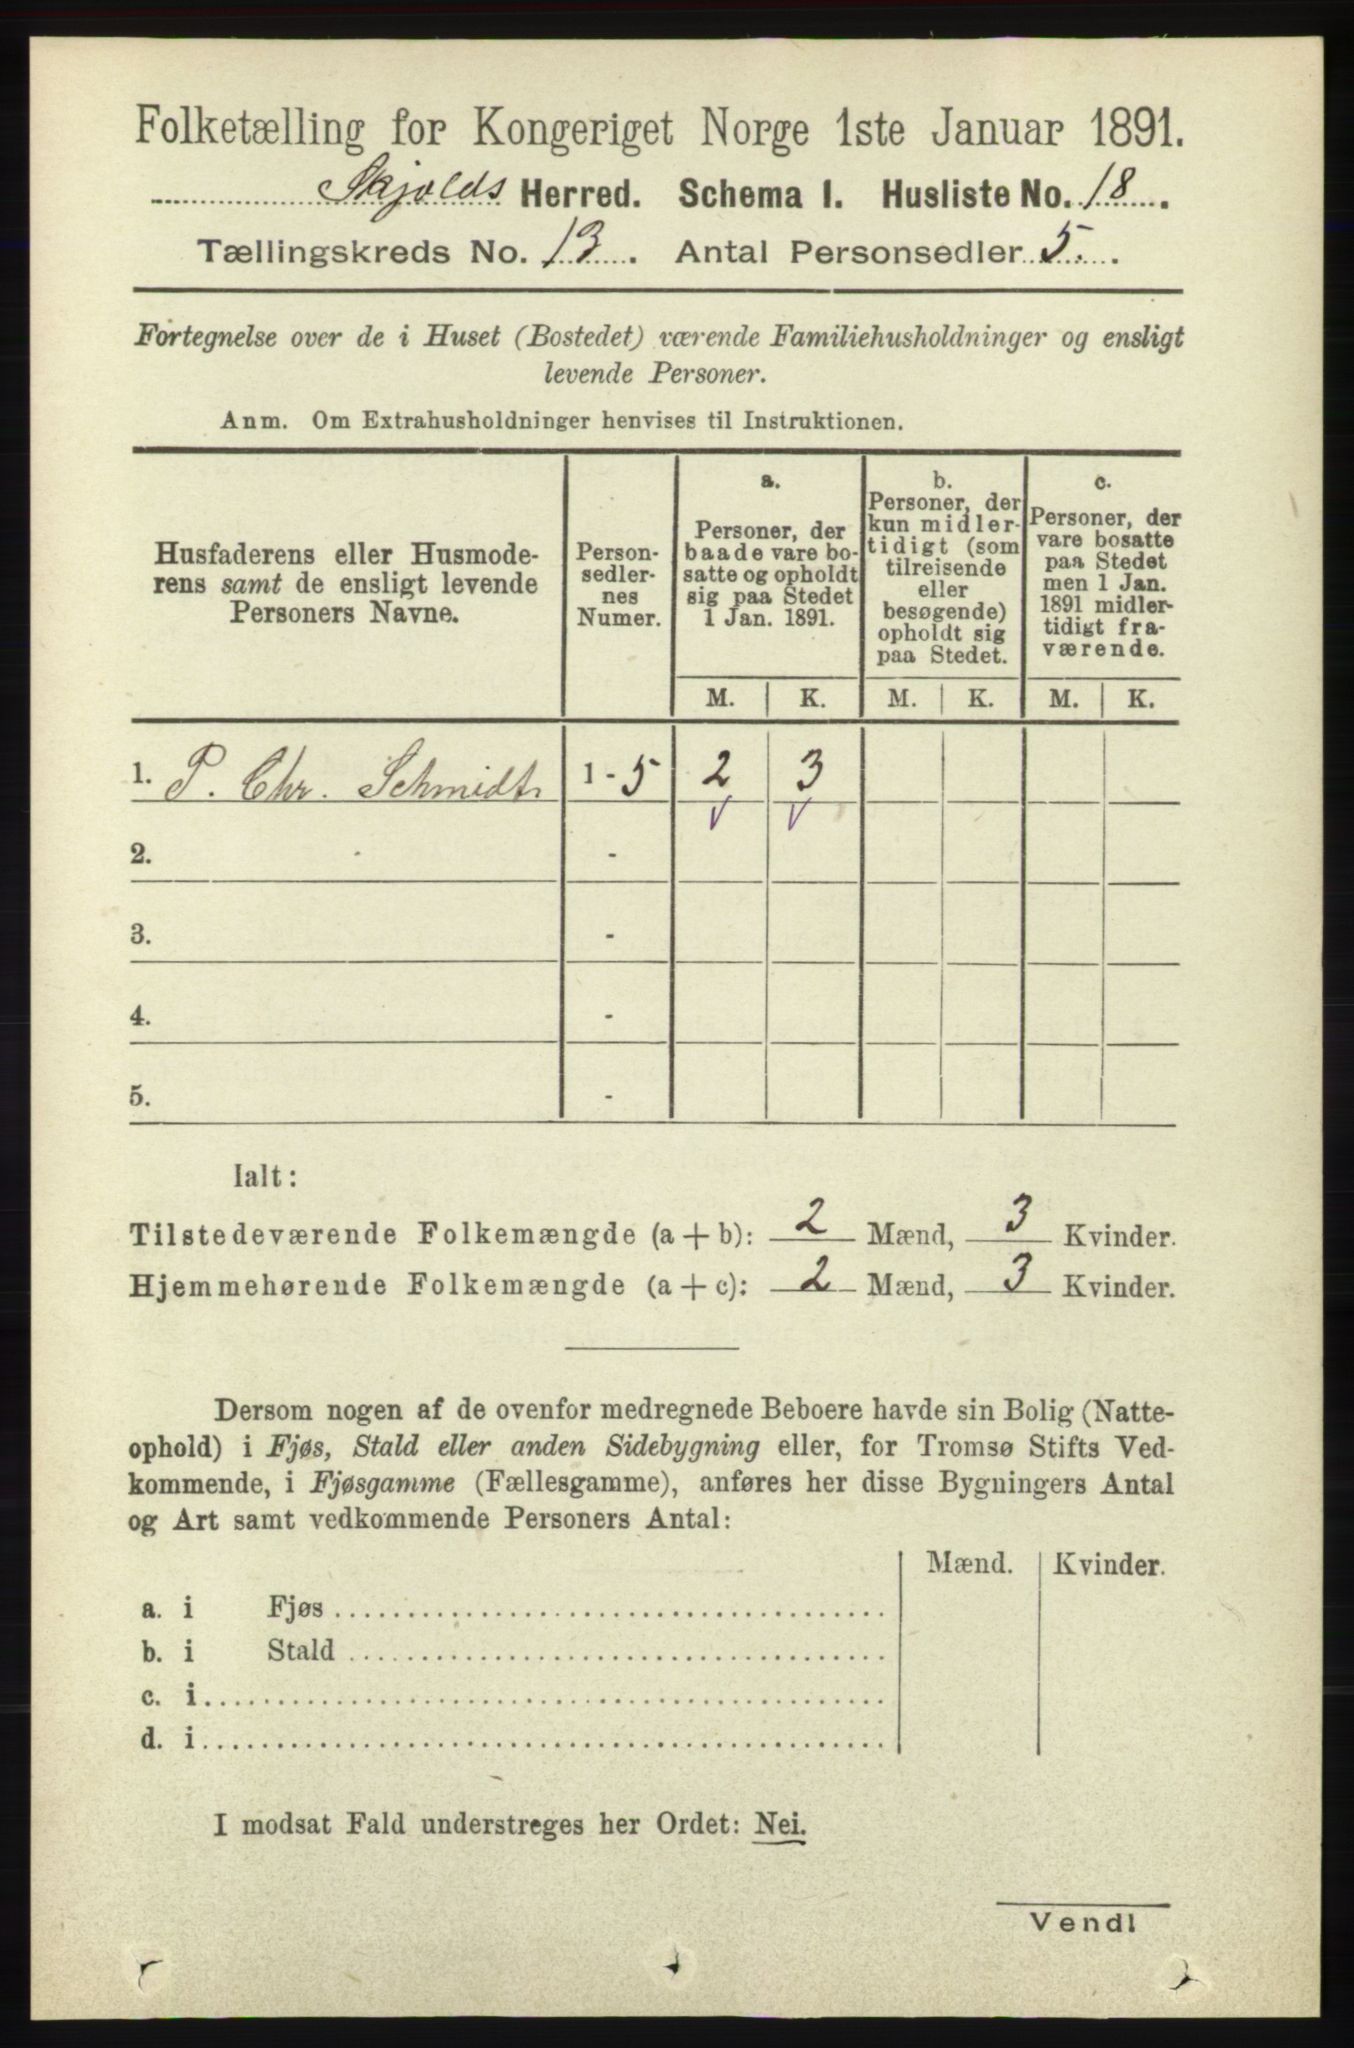 Folketælling for Kongeriget Norge 1ste Januar 1891.
Skjolds Herred. Schema I. Husliste No. 18.
Tællingskreds No. 13. Antal Personsedler 5.
Fortegnelse over de i Huset (Bostedet) værende Familiehusholdninger og ensligt
levende Personer.
Anm. Om Extrahusholdninger henvises til Instruktionen.
Husfaderens eller Husmode-
rens samt de ensligt levende
Personers Navne.
Person-
sedler-
nes
Numer.
a.
Personer, der
baade vare bo-
satte og opholdt
sig paa Stedet
1 Jan. 1891.
b.
Personer, der
kun midler-
tidigt (som
tilreisende
eller
besøgende)
opholdt sig
paa Stedet.
c.
Personer, der
vare bosatte
paa Stedet
men 1 Jan.
1891 midler-
tidigt fra-
værende.
M. K. M. K. M. K.
1. P. Chr. Schmidt. 1 - 5 2 3
2. -
3. -
4. -
5. -
Ialt:
Tilstedeværende Folkemængde (a + b): 2 Mænd, 3 Kvinder.
Hjemmehørende Folkemængde (a + c): 2 Mænd, 3 Kvinder.
Dersom nogen af de ovenfor medregnede Beboere havde sin Bolig (Natte-
ophold) i Fjøs, Stald eller anden Sidebygning eller, for Tromsø Stifts Ved-
kommende, i Fjøsgamme (Fællesgamme), anføres her disse Bygningers Antal
og Art samt vedkommende Personers Antal:
Mænd. Kvinder.
a. i Fjøs
b. i Stald
c. i
d. i
I modsat Fald understreges her Ordet: Nei.
Vend!